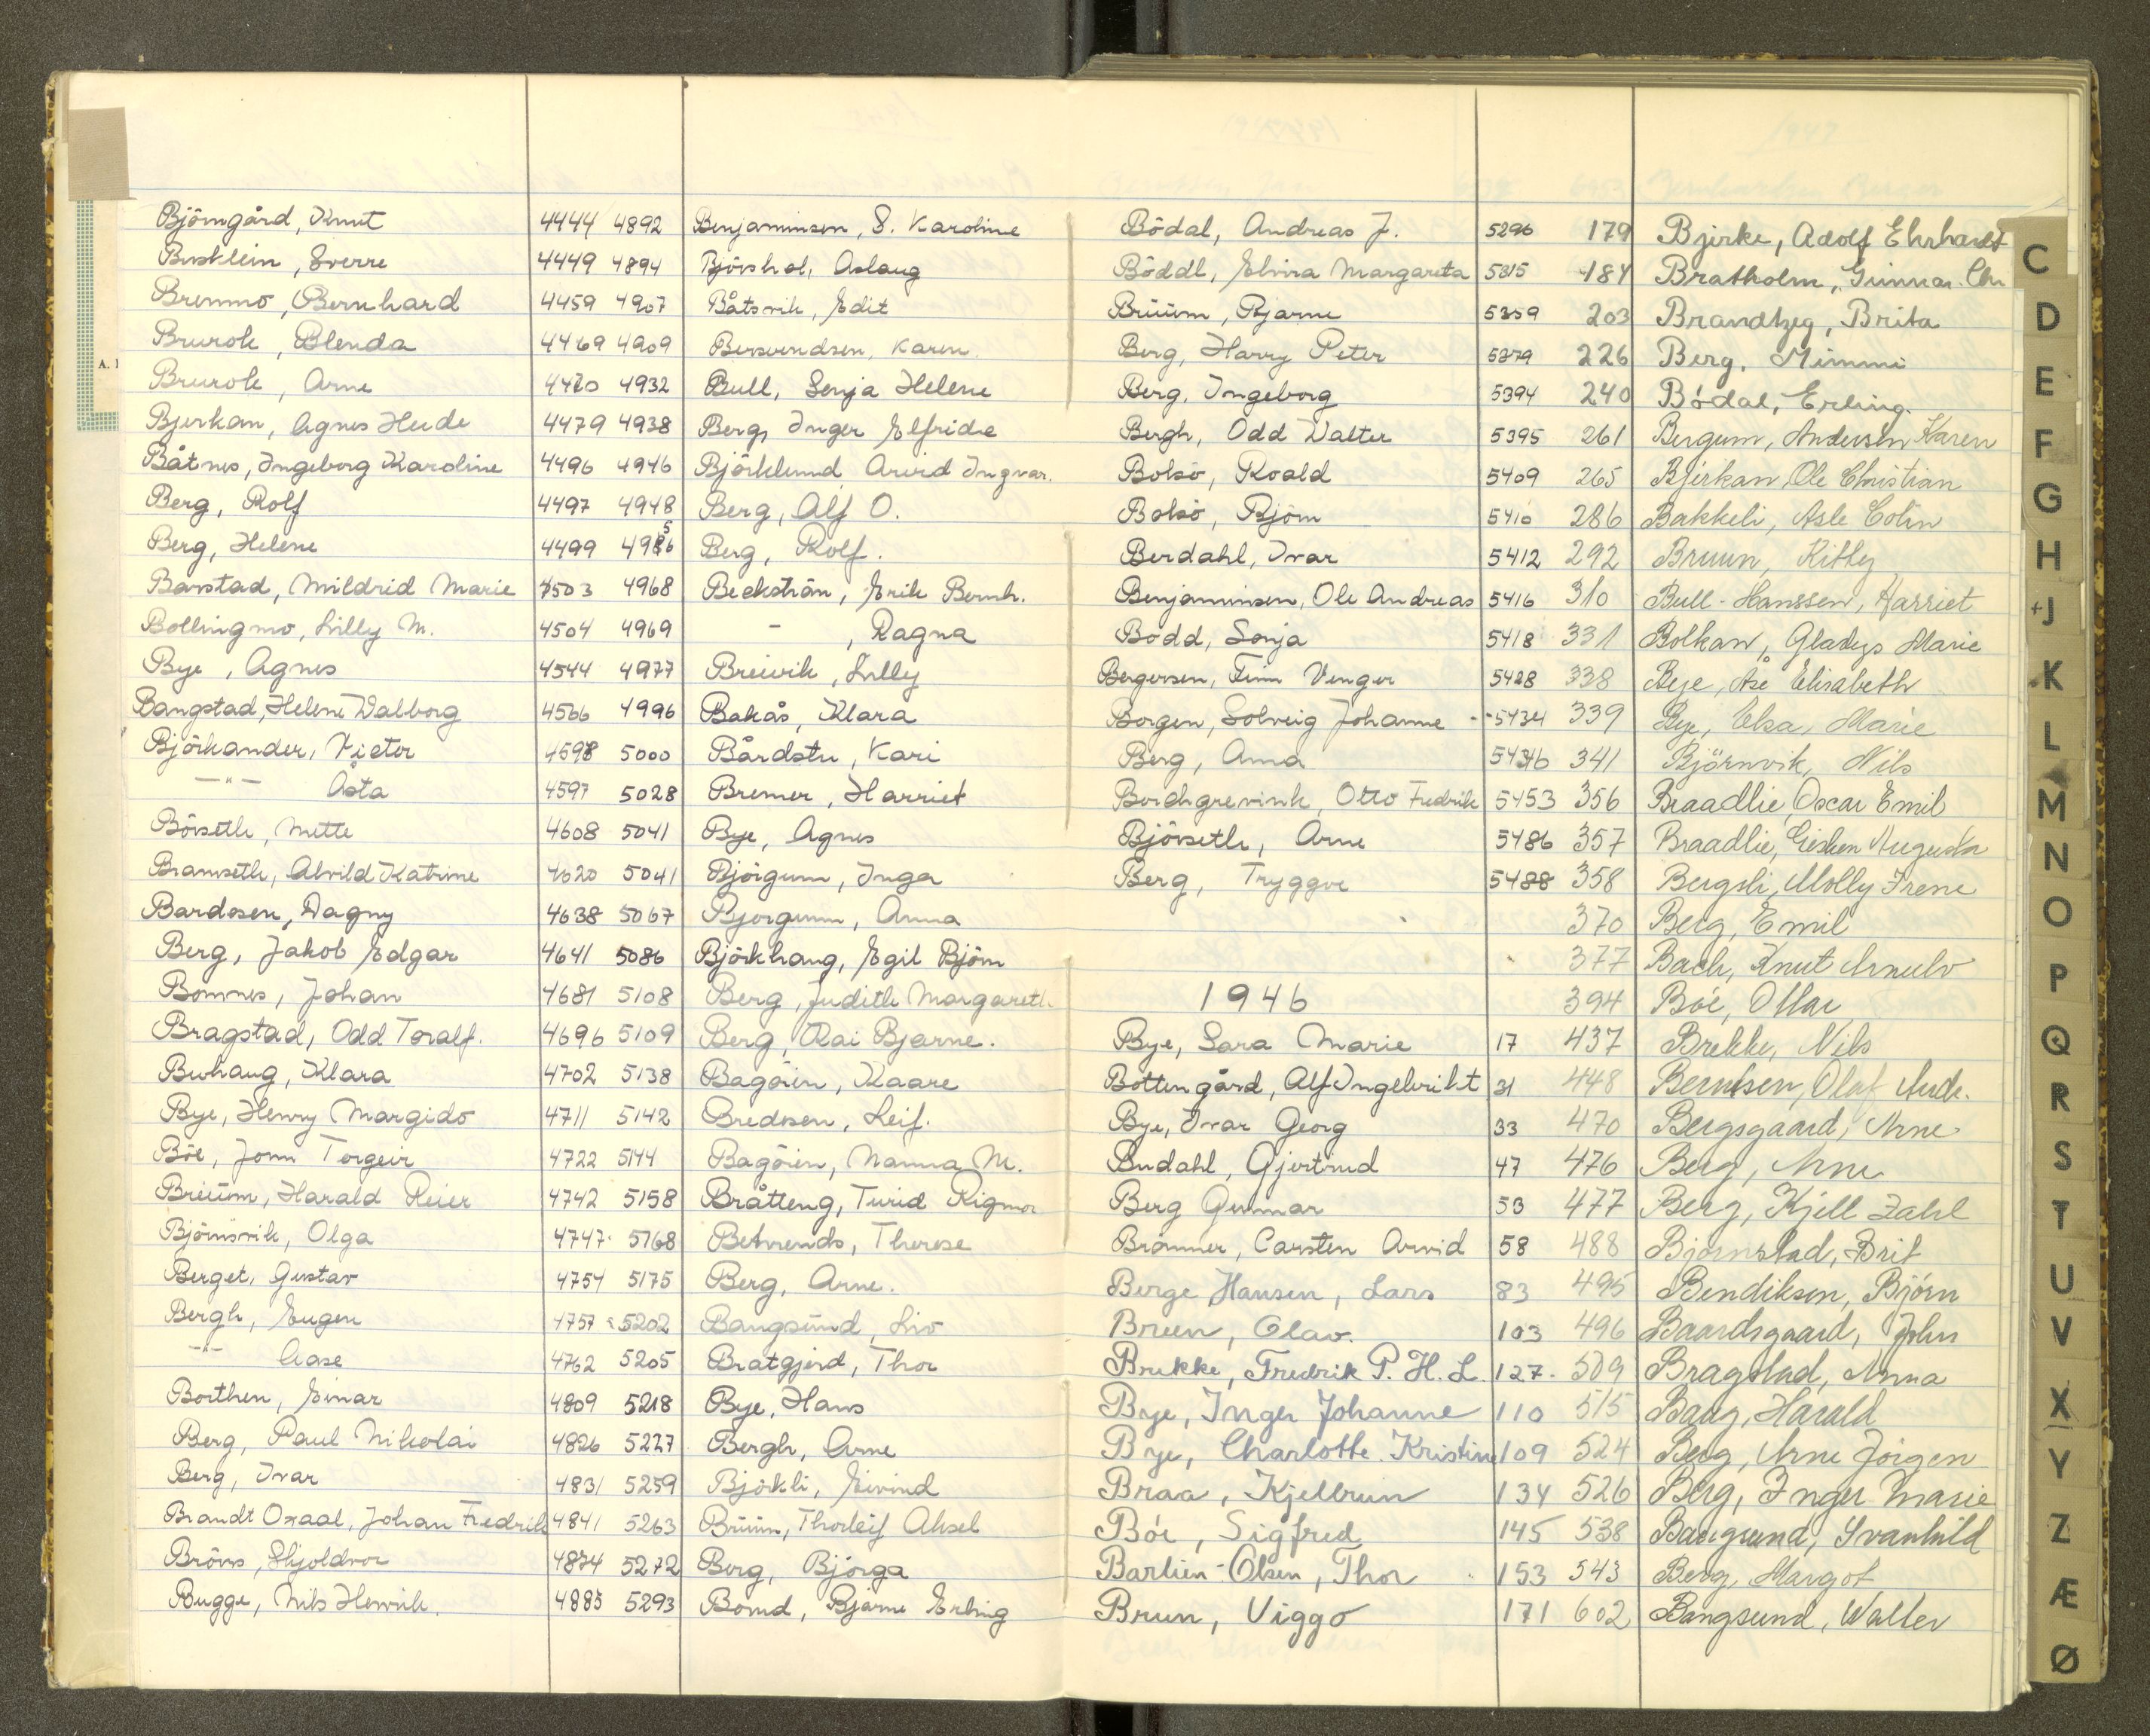 Björngård, Knut 4444 4892 Benjaminsen, S. Karoline
Bustlein, Sverre 4449 4894 Björshol, Aslaug
Bremmo, Bernhard 4459 4907 Båtsvik, Edit
Brurok, Blenda 4469 4909 Karen
Brurok, Arne 4470 4932 Bull, Senja Helene
Bjerkan, Agnes Hude 4479 4938 Berg, Inger Elfride
Båtnes, Ingeborg Karoline 4496 4946 Björklund Arvid Ingvar.
Berg, Rolf 4497 4948 Berg, Alf O.
Berg, Helene 4499 Berg, Rolf.
Barstad, Mildrid Marie 4503 4968 Beckström, Erik Bernh.
Bollingmo, Lilly M. 4504 4969 - , Ragna
Bye, Agnes 4544 4977 Breivik, Lilly
Bangstad, Helene Walborg 4566 4996 Bakås, Klara
Björkander, Victor 4598 5000 Bårdstu, Kari
—"— Åsta 4597 5028 Bremer, Harriet
Börseth, Mette 4608 5041 Bye, Agnes
Bramseth, Alvild Katrine 4620 5041 Björgum, Inga
Bardosen, Dagny 4638 5067 Bjorgum, Anna
Berg, Jakob Edgar 4641 5086 Björkhaug, Egil Björn
Bomnes, Johan 4681 5108 Berg, Judith Margareth
Bragstad, Odd Toralf. 4696 5109 Berg, Olai Bjarne.
Buhaug, Klara 4702 5138 Bagöien, Kaare
Bye, Henry Margido 4711 5142 Bredesen, Leif.
Böe, Jonn Torgeir 4722 5144 Bagöien, Nanna M.
Breium, Harald Reier 4742 5158 Bråtteng, Turid Rigmor
Björnsvik, Olga 4747 5168 Behrends, Therese
Berget, Gustav 4754 5175 Berg, Arne.
Bergh, Eugen 4757 5202 Bangsund, Liv
—"— Aase 4762 5205 Bratgjerd, Thor
Borthen, Einar 4809 5218 Bye, Hans
Berg, Paul Nikolai 4826 5227 Bergh, Arne
Berg, Ivar 4831 5259 Björkli, Eivind
Brandt Oxaal, Johan Fredrik 4841 5263 Brüün, Thorleif Aksel
Bröves, Skjoldvor 4874 5272 Berg, Bjørga
Bugge, Nils Henrik. 4885 5293 Bomd, Bjarne Erling
Bödal, Andreas J. 5296 179 Bjirke, Adolf Ehrhardt
Böddl, Elvira Margareta 5315 184 Bratholm, Gunnar Chr
Brüüm, Bjarne 5359 203 Brandtzeg, Brita
Berg, Harry Peter 5379 226 Berg, Mimmi
Berg, Ingeborg 5394 240 Bödal, Erling.
Bergh, Odd Walter 5395 261 Bergum, Andersen Karen
Bolsö, Roald 5409 265 Bjerkan, Ole Christian
Bolsö, Björn 5410 286 Bakkeli, Asle Colin
Berdahl, Ivar 5412 292 Bruun, Kitty
Benjaminsen, Ole Andreas 5416 310 Bull-Hanssen, Harriet
Bodd, Sonja 5418 331 Bolkan, Gladys Marie
Bergersen, Finn Venger 5428 338 Bye, Åse Elisabeth
Borgen, Solveig Johanne 5434 339 Bye, Elsa, Marie
Berg, Anna 5436 341 Björnvik, Nils
Borchgrevink, Otto Fredrik 5453 356 Braadlie, Oscar Emil
Björseth, Arne 5486 357 Braadlie, Gesken Augusta
Berg, Tryggve 5488 358 Bergsli, Molly Irene
370 Berg, Emil
377 Bach, Knut Arnulv
1946 394 Böe, Ottar
Bye, Sara Marie 17 437 Brekke, Nils
Bottengård, Alf Ingebrikt 31 448 Berntsen, Olaf Andr.
Bye, Ivar Georg 33 470 Bergsgaard, Arne
Budahl, Gjertrud 47 476 Berg, Arne
Berg Gunnar 53 477 Berg, Kjell Zahl
Brömmer, Carsten Arvid 58 488 Bjørnstad, Brit
Berge Hansen, Lars 83 495 Bendiksen, Bjørn
Breen, Olav. 103 496 Baardsgaard, John
Brekke, Fredrik P. H. L. 127 509 Bragstad, Anna
Bye, Inger Johanne 110 515 Baug, Harald
Bye, Charlotte Kristine 109 524 Berg, Arne Jörgen
Braa, Kjellrun 134 526 Berg, Inger Marie
Böe, Sigfred 145 538 Bangsund, Svanhild
Barlien-Olsen, Thor 153 543 Berg, Margot
Brun, Viggo 171 602 Bangsund, Walter
C
D
E
F
G
H
J
K
L
M
N
O
P
Q
R
S
T
U
V
X
Y
Z
Æ
Ø